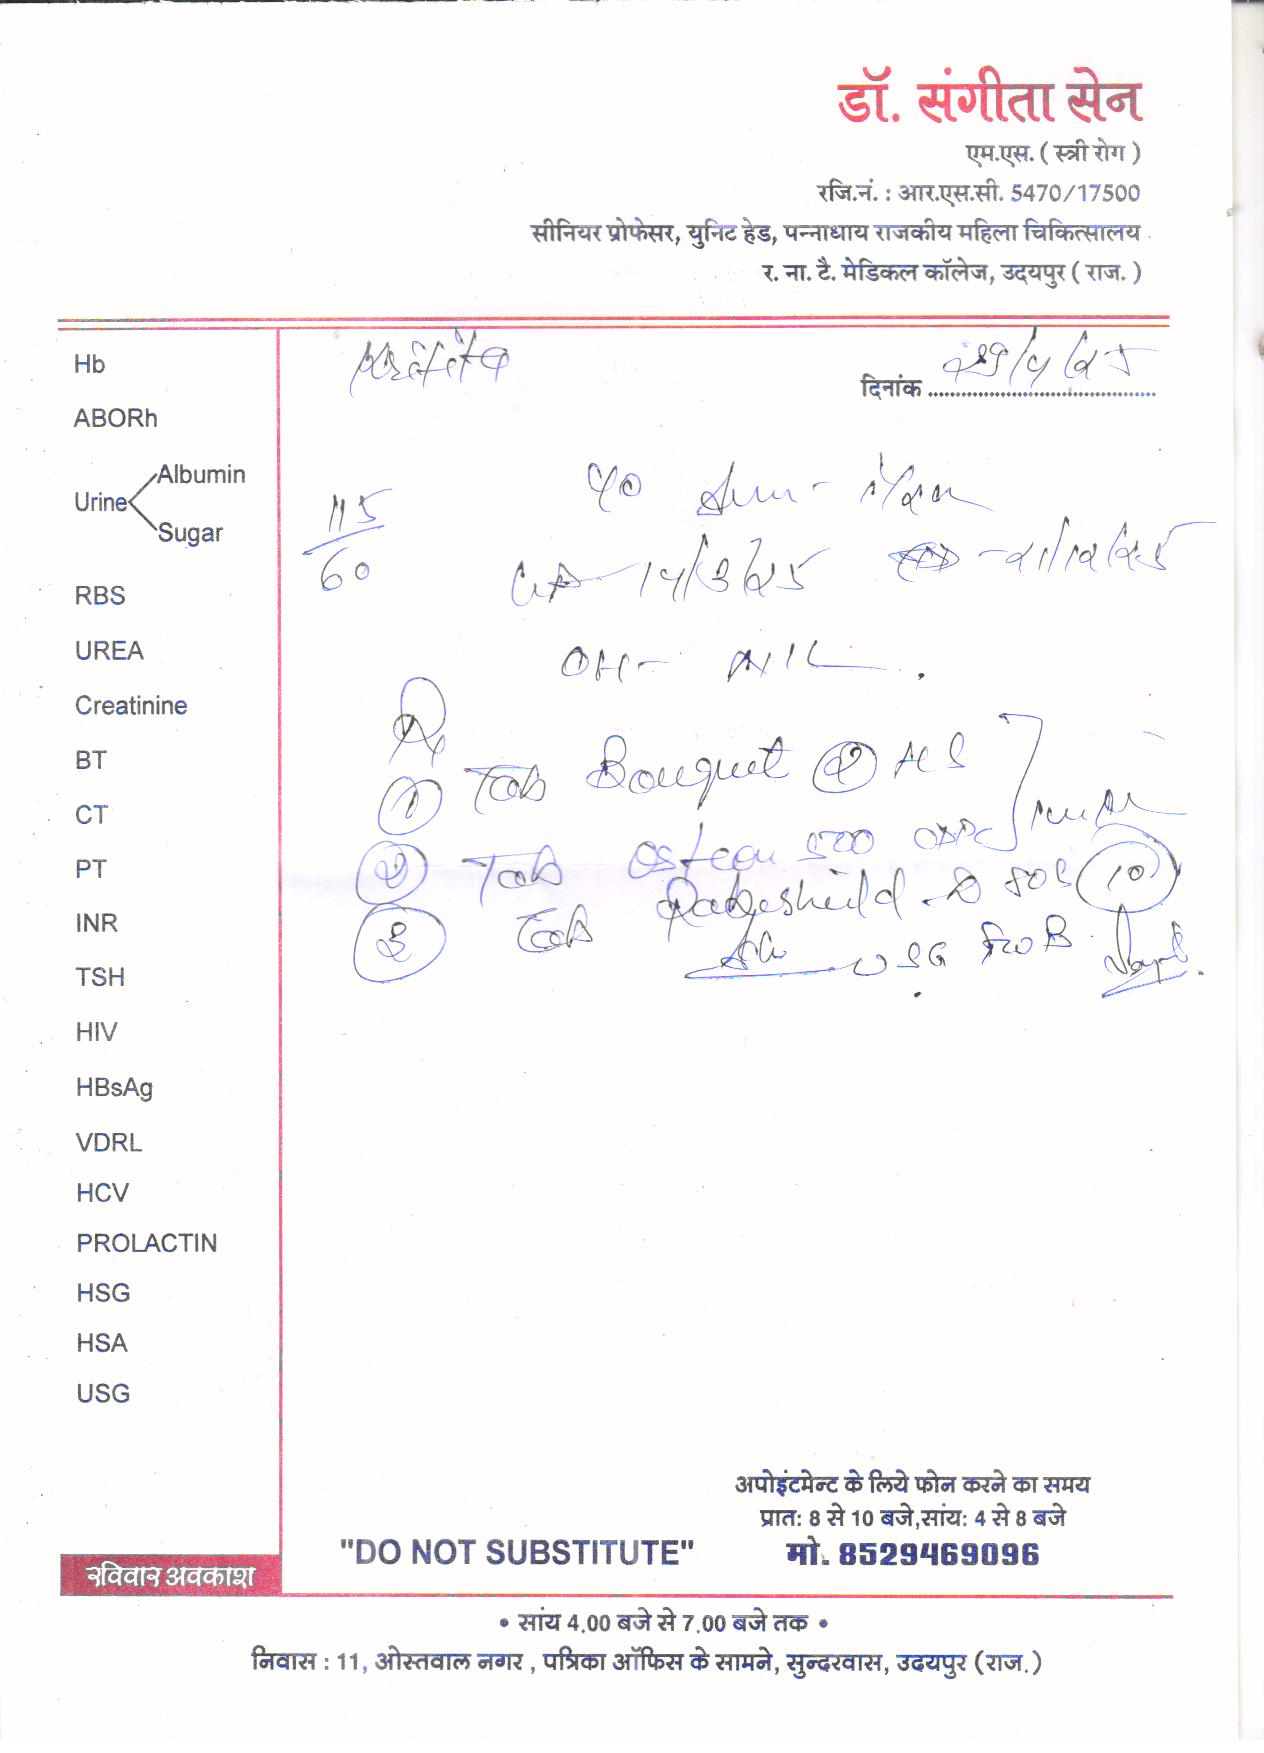 डॉ. संगीता सेन
एम.एस. ( स्त्री रोग )
रजि.नं. : आर.एस.सी. 5470/17500
सीनियर प्रोफेसर, युनिट हेड, पन्नाधाय राजकीय महिला चिकित्सालय
र. ना. टै. मेडिकल कॉलेज, उदयपुर ( राज. )
दिनांक 29/4/25
Hb
ABORh
Urine Albumin
Sugar
RBS
UREA
Creatinine
BT
CT
PT
INR
TSH
HIV
HBsAg
VDRL
HCV
PROLACTIN
HSG
HSA
USG
115/60
14/3/25 - 21/12/25
OH - NIL
Rx
① Tab Bouquet HS
② Tab 500
③ Tab SOS 10
USG
अपोइंटमेन्ट के लिये फोन करने का समय
प्रात: 8 से 10 बजे,सांय: 4 से 8 बजे
"DO NOT SUBSTITUTE" मो. 8529469096
रविवार अवकाश
• सांय 4.00 बजे से 7.00 बजे तक •
निवास : 11, ओस्तवाल नगर , पत्रिका ऑफिस के सामने, सुन्दरवास, उदयपुर (राज.)